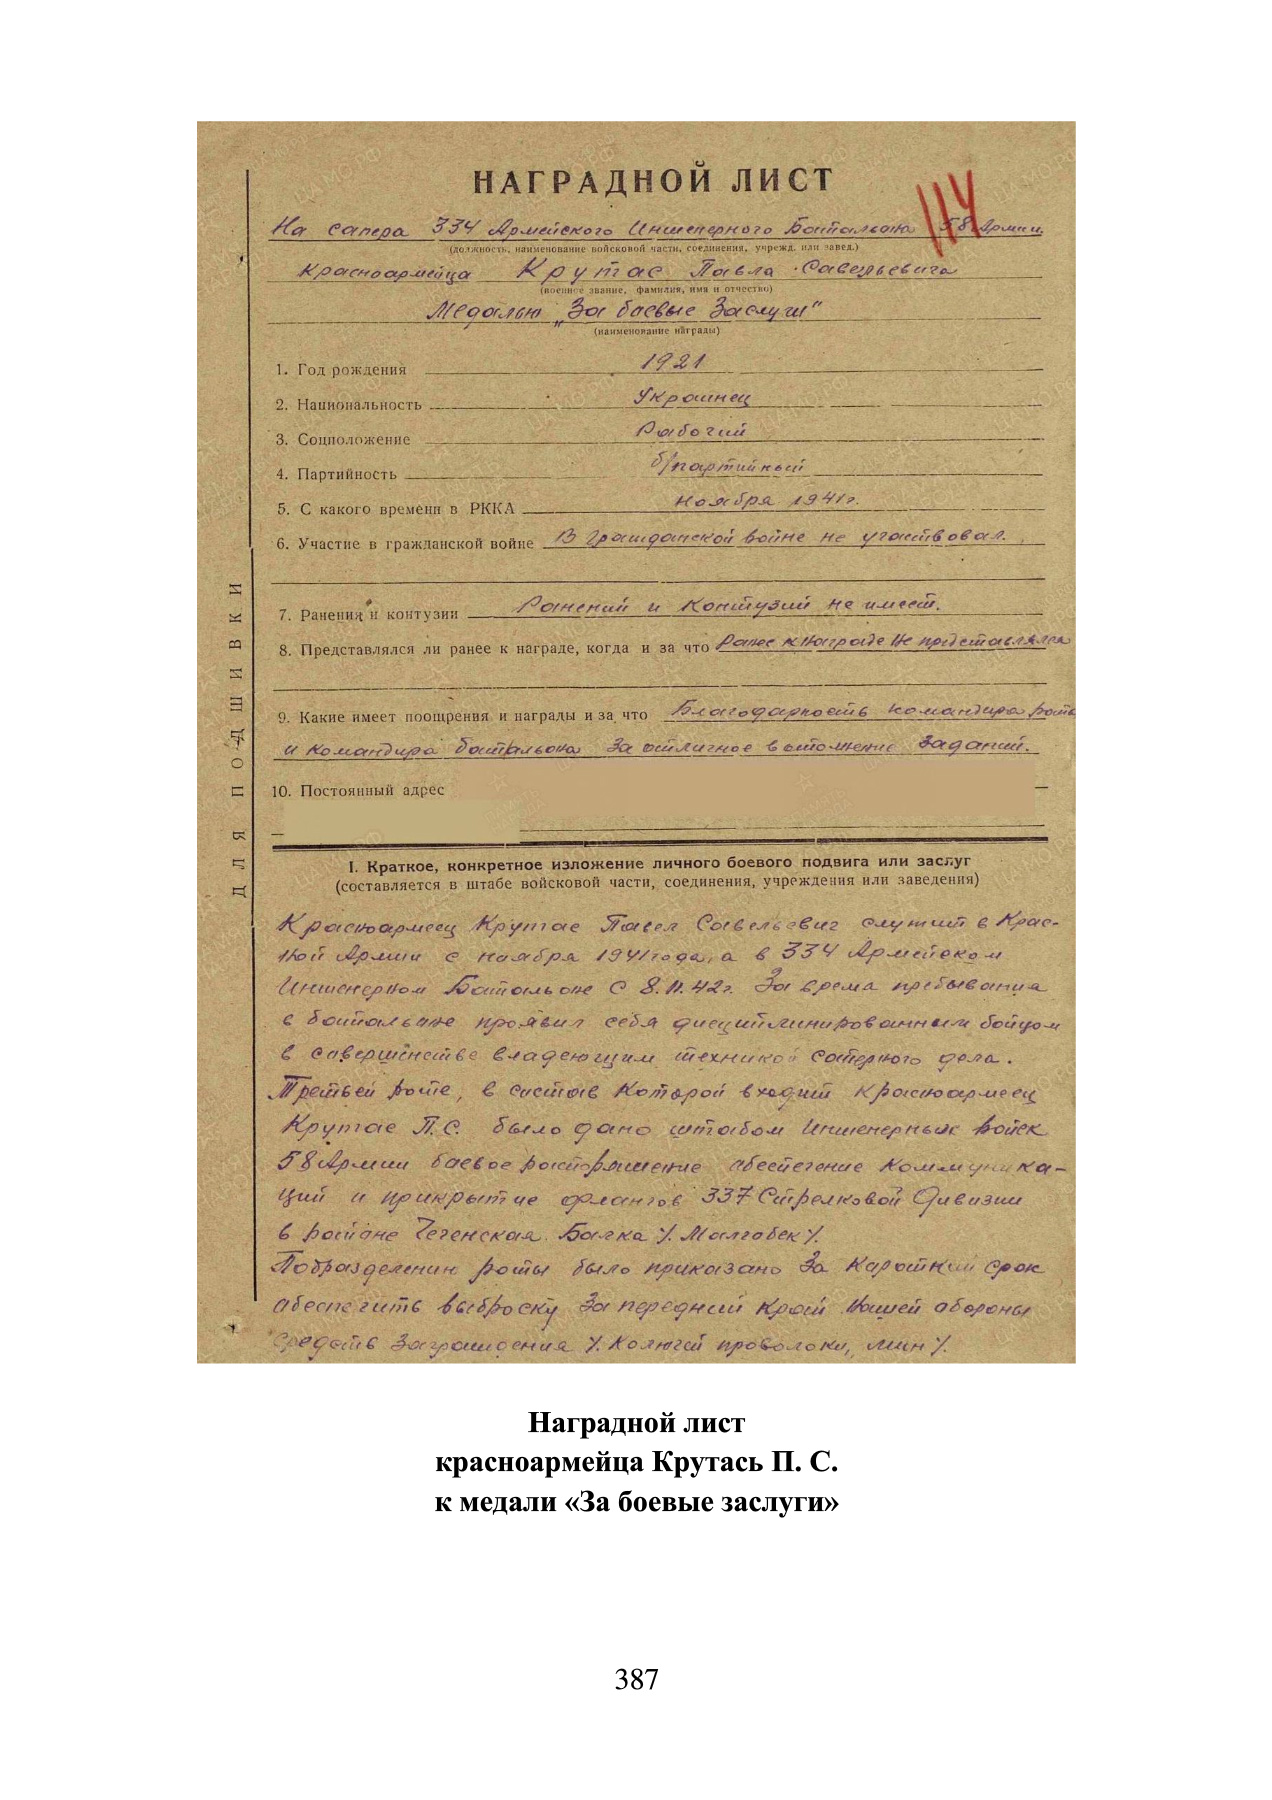 НАГРАДНОЙ ЛИСТ
114
На сапера 334 Армейского Инженерного Батальона 58 Армии
(должность, наименование войсковой части, соединения, учрежд. или завед.)
Красноармейца Крутас Павла Савельевича
(военное звание, фамилия, имя и отчество)
Медалью „За боевые Заслуги"
(наименование награды)
1. Год рождения 1921
2. Национальность Украинец
3. Соцположение Рабочий
4. Партийность б/партийный
5. С какого времени в РККА Ноября 1941г.
6. Участие в гражданской войне В Гражданской войне не участвовал.
7. Ранения и контузии Ранений и Контузий не имеет.
8. Представлялся ли ранее к награде, когда и за что Ранее к награде не представлялся
9. Какие имеет поощрения и награды и за что Благодарность командира роты
и командира батальона За отличное выполнение Заданий.
10. Постоянный адрес
ДЛЯ ПОДШИВКИ
I. Краткое, конкретное изложение личного боевого подвига или заслуг
(составляется в штабе войсковой части, соединения, учреждения или заведения)
Красноармеец Крутас Павел Савельевич служит в Крас-
ной Армии с ноября 1941 года, а в 334 Армейском
Инженерном Батальоне с 8.11.42г. За время пребывания
в батальоне проявил себя дисциплинированным бойцом
в совершенстве владеющим техникой саперного дела.
Третьей роте, в состав Которой входит красноармеец
Крутас П.С. было дано штабом Инженерных войск
58 Армии боевое распоряжение абеспечение Коммуника-
ций и прикрытие флангов 337 Стрелковой Дивизии
в районе Чеченская Балка /. Малгобек /.
Подразделению роты было приказано За Кароткий срок
абеспечить выброску За передний Край Нашей абороны
средств Заграждения /. Колючей проволоки, мин /.
Наградной лист
красноармейца Крутась П. С.
к медали «За боевые заслуги»
387